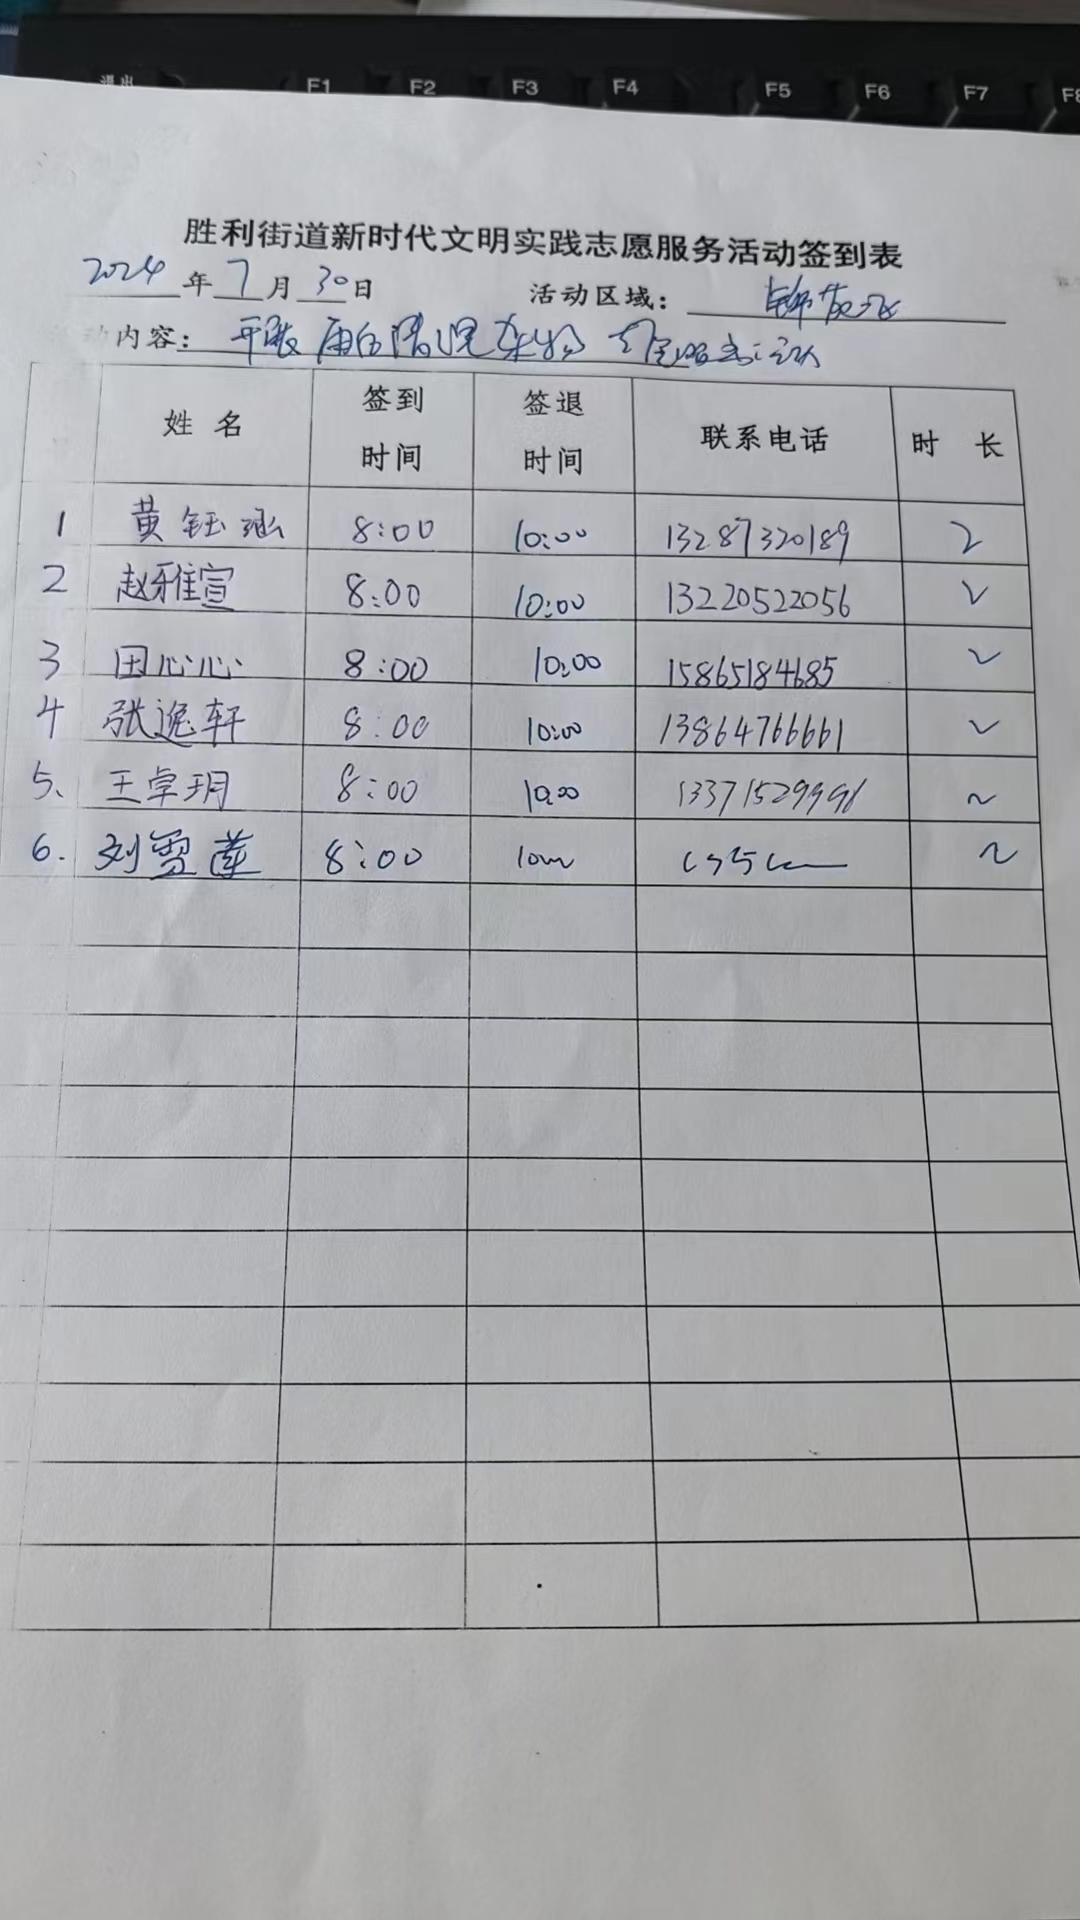 退出 F1 F2 F3 F4 F5 F6 F7 F8
胜利街道新时代文明实践志愿服务活动签到表
2024年7月30日 活动区域：
动内容： 开展
姓 名 签到时间 签退时间 联系电话 时 长
1 黄钰涵 8:00 10:00 13287320189 2
2 赵雅宣 8:00 10:00 13220522056 2
3 田心心 8:00 10:00 15865184685 2
4 张逸轩 8:00 10:00 13864766661 2
5、 王卓玥 8:00 10:00 1337152999 2
6. 刘雪莲 8:00 1000 2